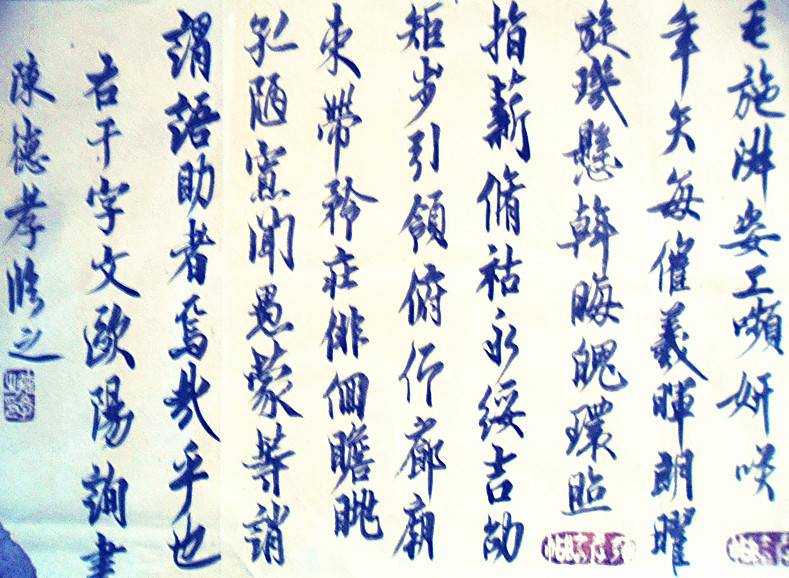 毛施淑姿工嚬妍咲
年矢每催羲暉朗曜
旋璣懸斡晦魄環照
指薪脩祜永綏吉劭
矩步引領俯仰廊廟
束帶矜莊俳佪瞻眺
孤陋寡聞愚蒙等誚
謂語助者焉哉乎也
右千字文歐陽詢書
陳德孝臨之